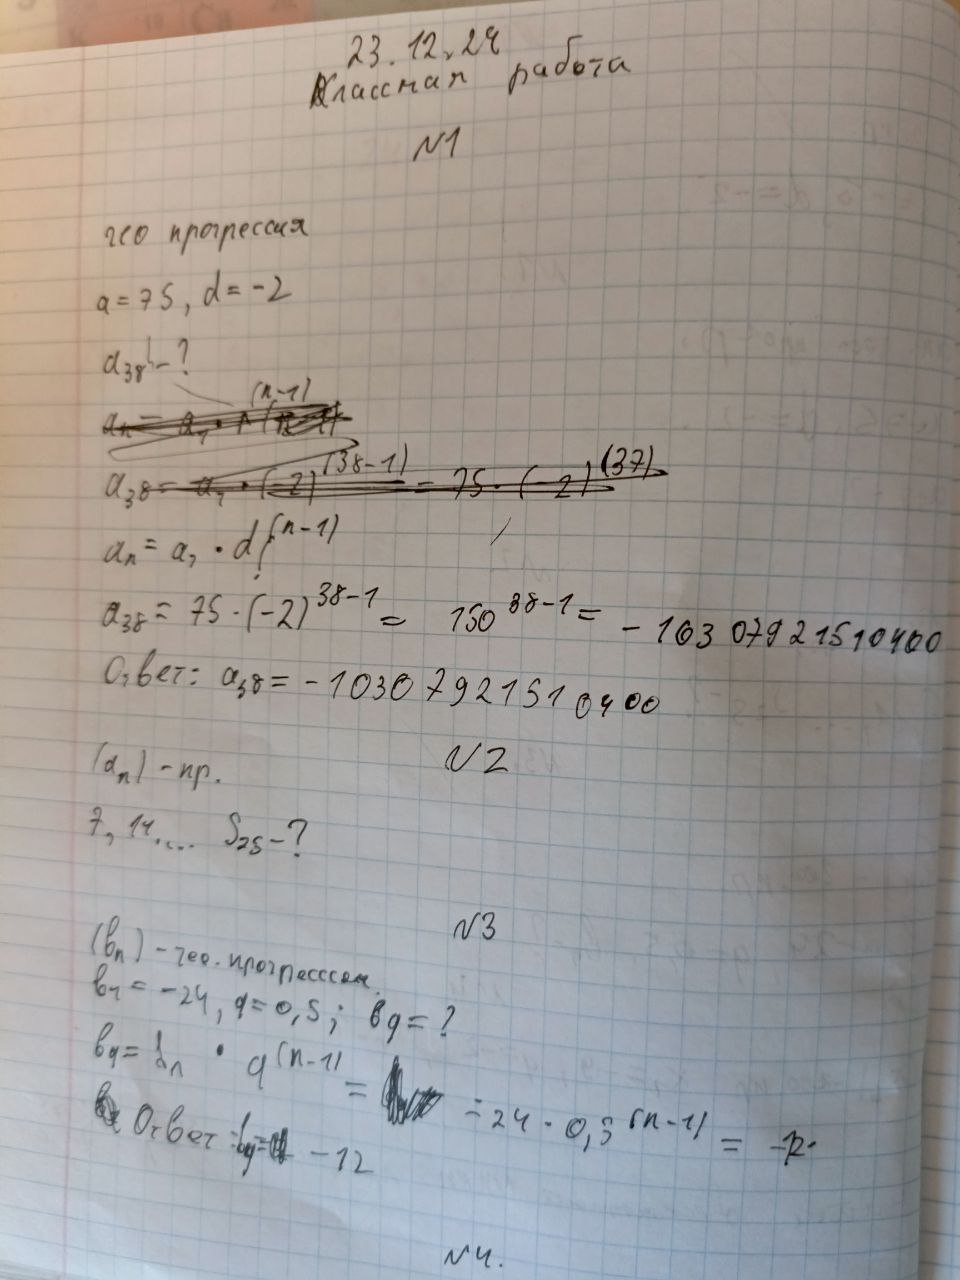 23.12.24
Классная работа
N1
гео прогрессия
a = 75, d = -2
a₃₈ - ?
aₙ = a₁ · d^(n-1)
a₃₈ = 75 · (-2)^38-1 = 150^38-1 = - 1030 7921510400
Ответ: a₃₈ = - 1030 7921510400
N2
(aₙ) - пр.
7, 14.... S₂₅ - ?
N3
(вₙ) - гео. прогрессия.
q = 0,5;
q^(n-1) =
= 24 · 0,5^(n-1) =
Ответ: - 12
N4.